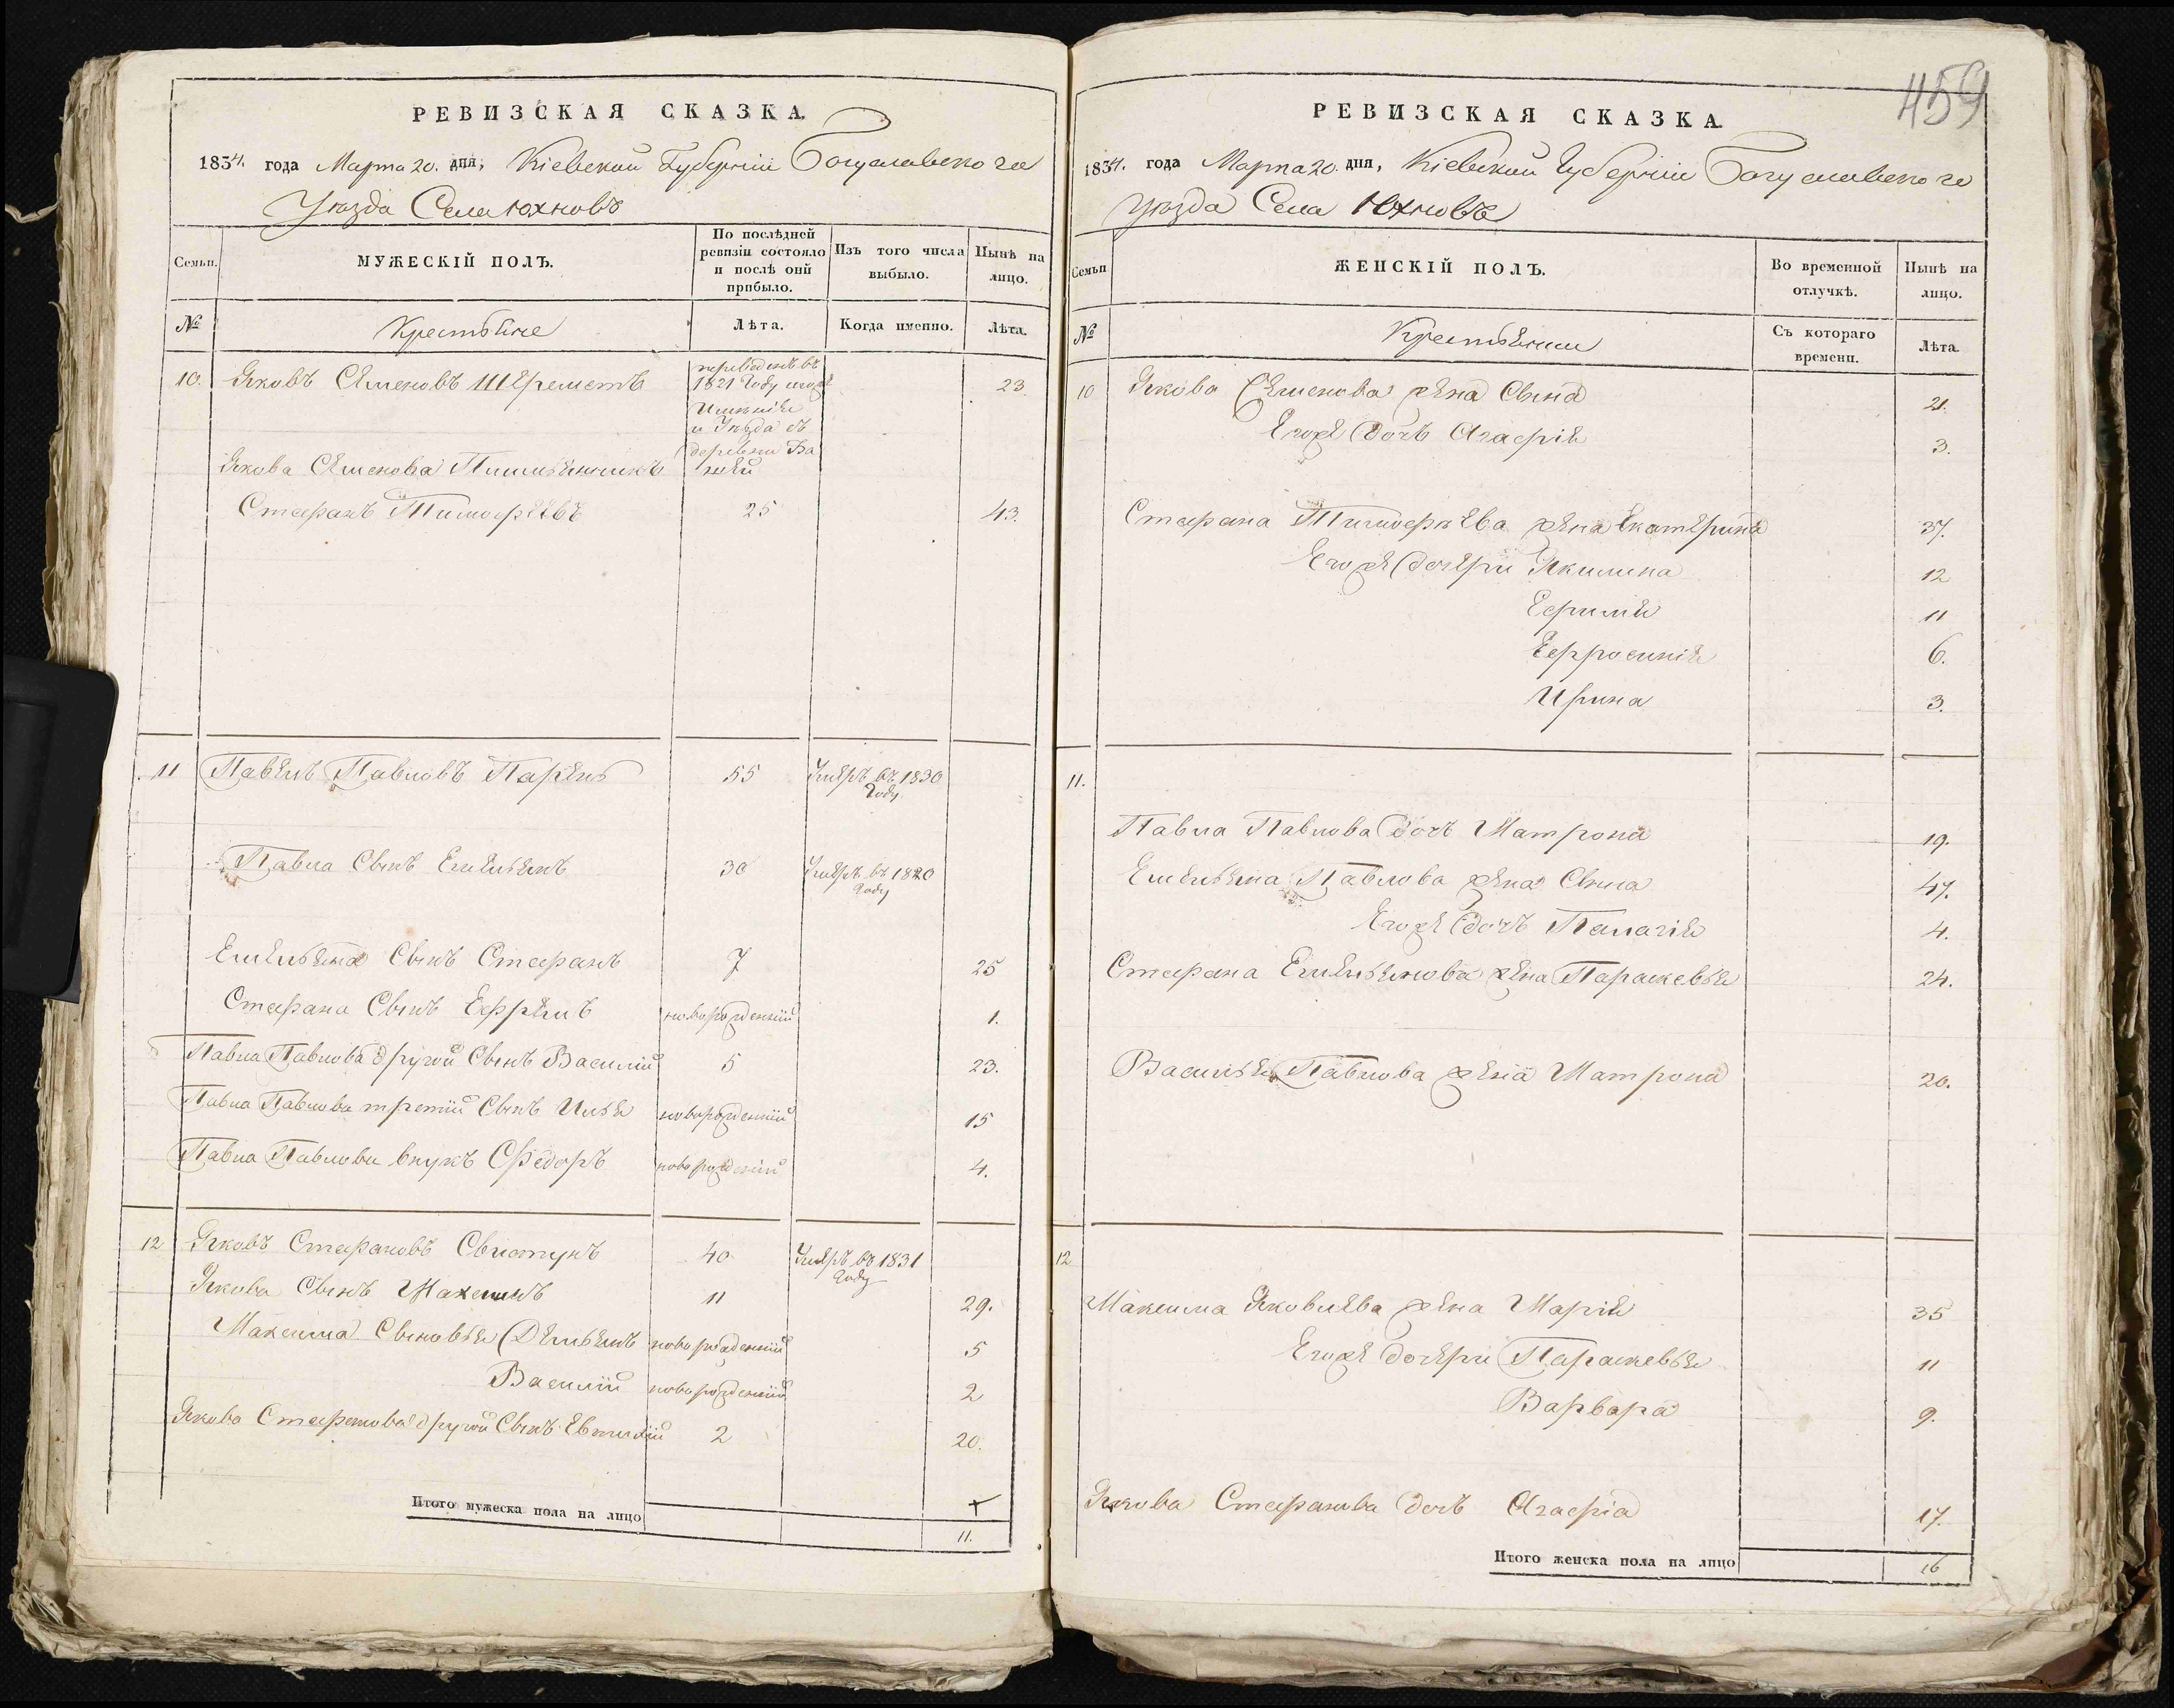 РЕВИЗСКАЯ СКАЗКА
1834. года Марта 20. дня, Кіевской Губерніи Богуславского
Уѣзда Села Юхновъ
Семьи.
МУЖЕСКІЙ ПОЛЪ.
По послѣдней ревизіи состояло и послѣ оній прибыло.
Изъ того числа выбыло.
Нынѣ на лицо.
№
Крестьяне
Лѣта.
Когда именно.
Лѣта.
10. Яковъ Семеновъ Шереметъ 23
переведенъ въ
1821 Году
Имѣнія
и Уѣзда съ
деревни
Якова Семенова Племянникъ
Стефанъ Тимофѣевъ 25 43.
11 Павелъ Павловъ 55 Умеръ въ 1830
Году
Павла Сынъ Емельянъ 30 Умеръ въ 1820
Году
Емельяна Сынъ Стефанъ 7 25
Стефана Сынъ Ефремъ новорожденный 1.
Павла Павлова другой Сынъ Василій 5 23.
Павла Павлова третий Сынъ Илья новорожденный 15
Павла Павлова внукъ Федоръ новорожденный 4.
12 Яковъ Стефановъ Свистунъ 40 Умеръ въ 1831
Году
Якова Сынъ Максимъ 11 29.
Максима Сыновья Демьянъ новорожденный 5
Василій новорожденный 2
Якова Стефанова другой Сынъ Евтихій 2 20.
Итого мужеска пола на лицо
11.
459
РЕВИЗСКАЯ СКАЗКА
1834. года Марта 20. дня, Кіевской Губерніи Богуславского
Уѣзда Села Юхновъ
Семьи
ЖЕНСКІЙ ПОЛЪ.
Во временной отлучкѣ.
Нынѣ на лицо.
№
Крестьянки
Съ котораго времени.
Лѣта.
10 Якова Семенова жена Анна 21.
Его же дочь Агафія 3.
Стефана Тимофѣева жена Екатерина 37.
Его же дочери Акилина 12
Ефимія 11
Ефросинія 6.
Ирина 3.
11.
Павла Павлова дочь Матрона 19.
Емельяна Павлова жена Анна 47.
Его же дочь Пелагія 4.
Стефана Емельянова жена Параскевья 24.
Василья Павлова жена Матрона 20.
12
Максима Яковлева жена Марія 35
Его же дочери Параскевья 11
Варвара 9.
Якова Стефанова дочь Агафія 17.
Итого женска пола на лицо 16